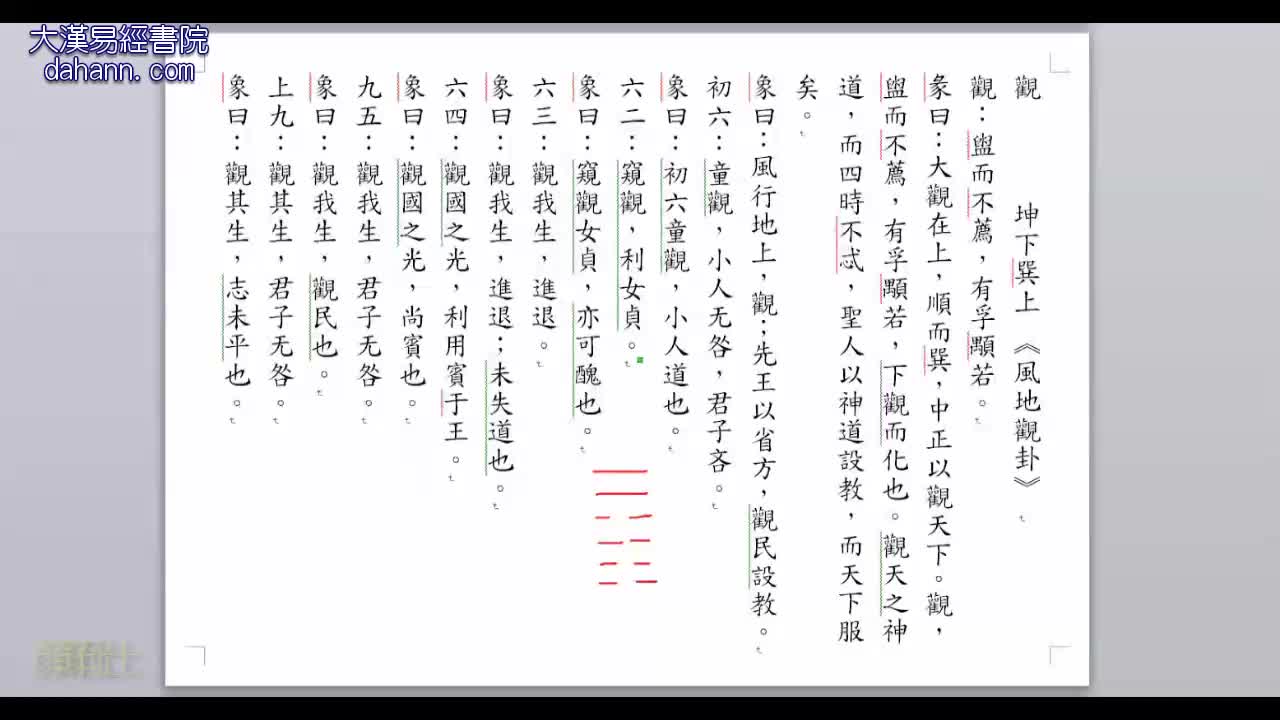 大漢易經書院
dahann. com
觀　坤下巽上　《風地觀卦》
觀：盥而不薦，有孚顒若。
彖曰：大觀在上，順而巽，中正以觀天下。觀，
盥而不薦，有孚顒若，下觀而化也。觀天之神
道，而四時不忒，聖人以神道設教，而天下服
矣。
象曰：風行地上，觀；先王以省方，觀民設教。
初六：童觀，小人无咎，君子吝。
象曰：初六童觀，小人道也。
六二：窺觀，利女貞。
象曰：窺觀女貞，亦可醜也。
六三：觀我生，進退。
象曰：觀我生，進退；未失道也。
六四：觀國之光，利用賓于王。
象曰：觀國之光，尚賓也。
九五：觀我生，君子无咎。
象曰：觀我生，觀民也。
上九：觀其生，君子无咎。
象曰：觀其生，志未平也。